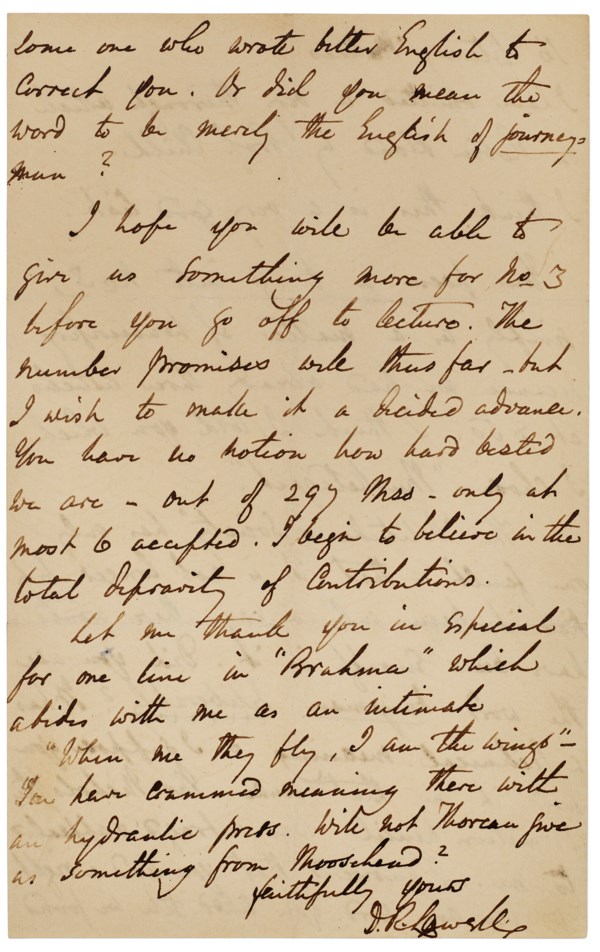 some one who wrote better English to
correct you. Or did you mean the
word to be merely the English of journey=
man?
I hope you will be able to
give us something more for No 3
before you go off to lecture. The
number promises well thus far - but
I wish to make it a decided advance.
You have no notion how hard bested
we are - out of 297 Mss - only at
most 6 accepted. I begin to believe in the
total depravity of Contributions.
Let me thank you in especial
for one line in "Brahma" which
abides with me as an intimate
"When me they fly, I am the wings" -
You have crammed meaning there with
an hydraulic press. Will not Thoreau give
us something from Moosehead?
faithfully yours
Lowell